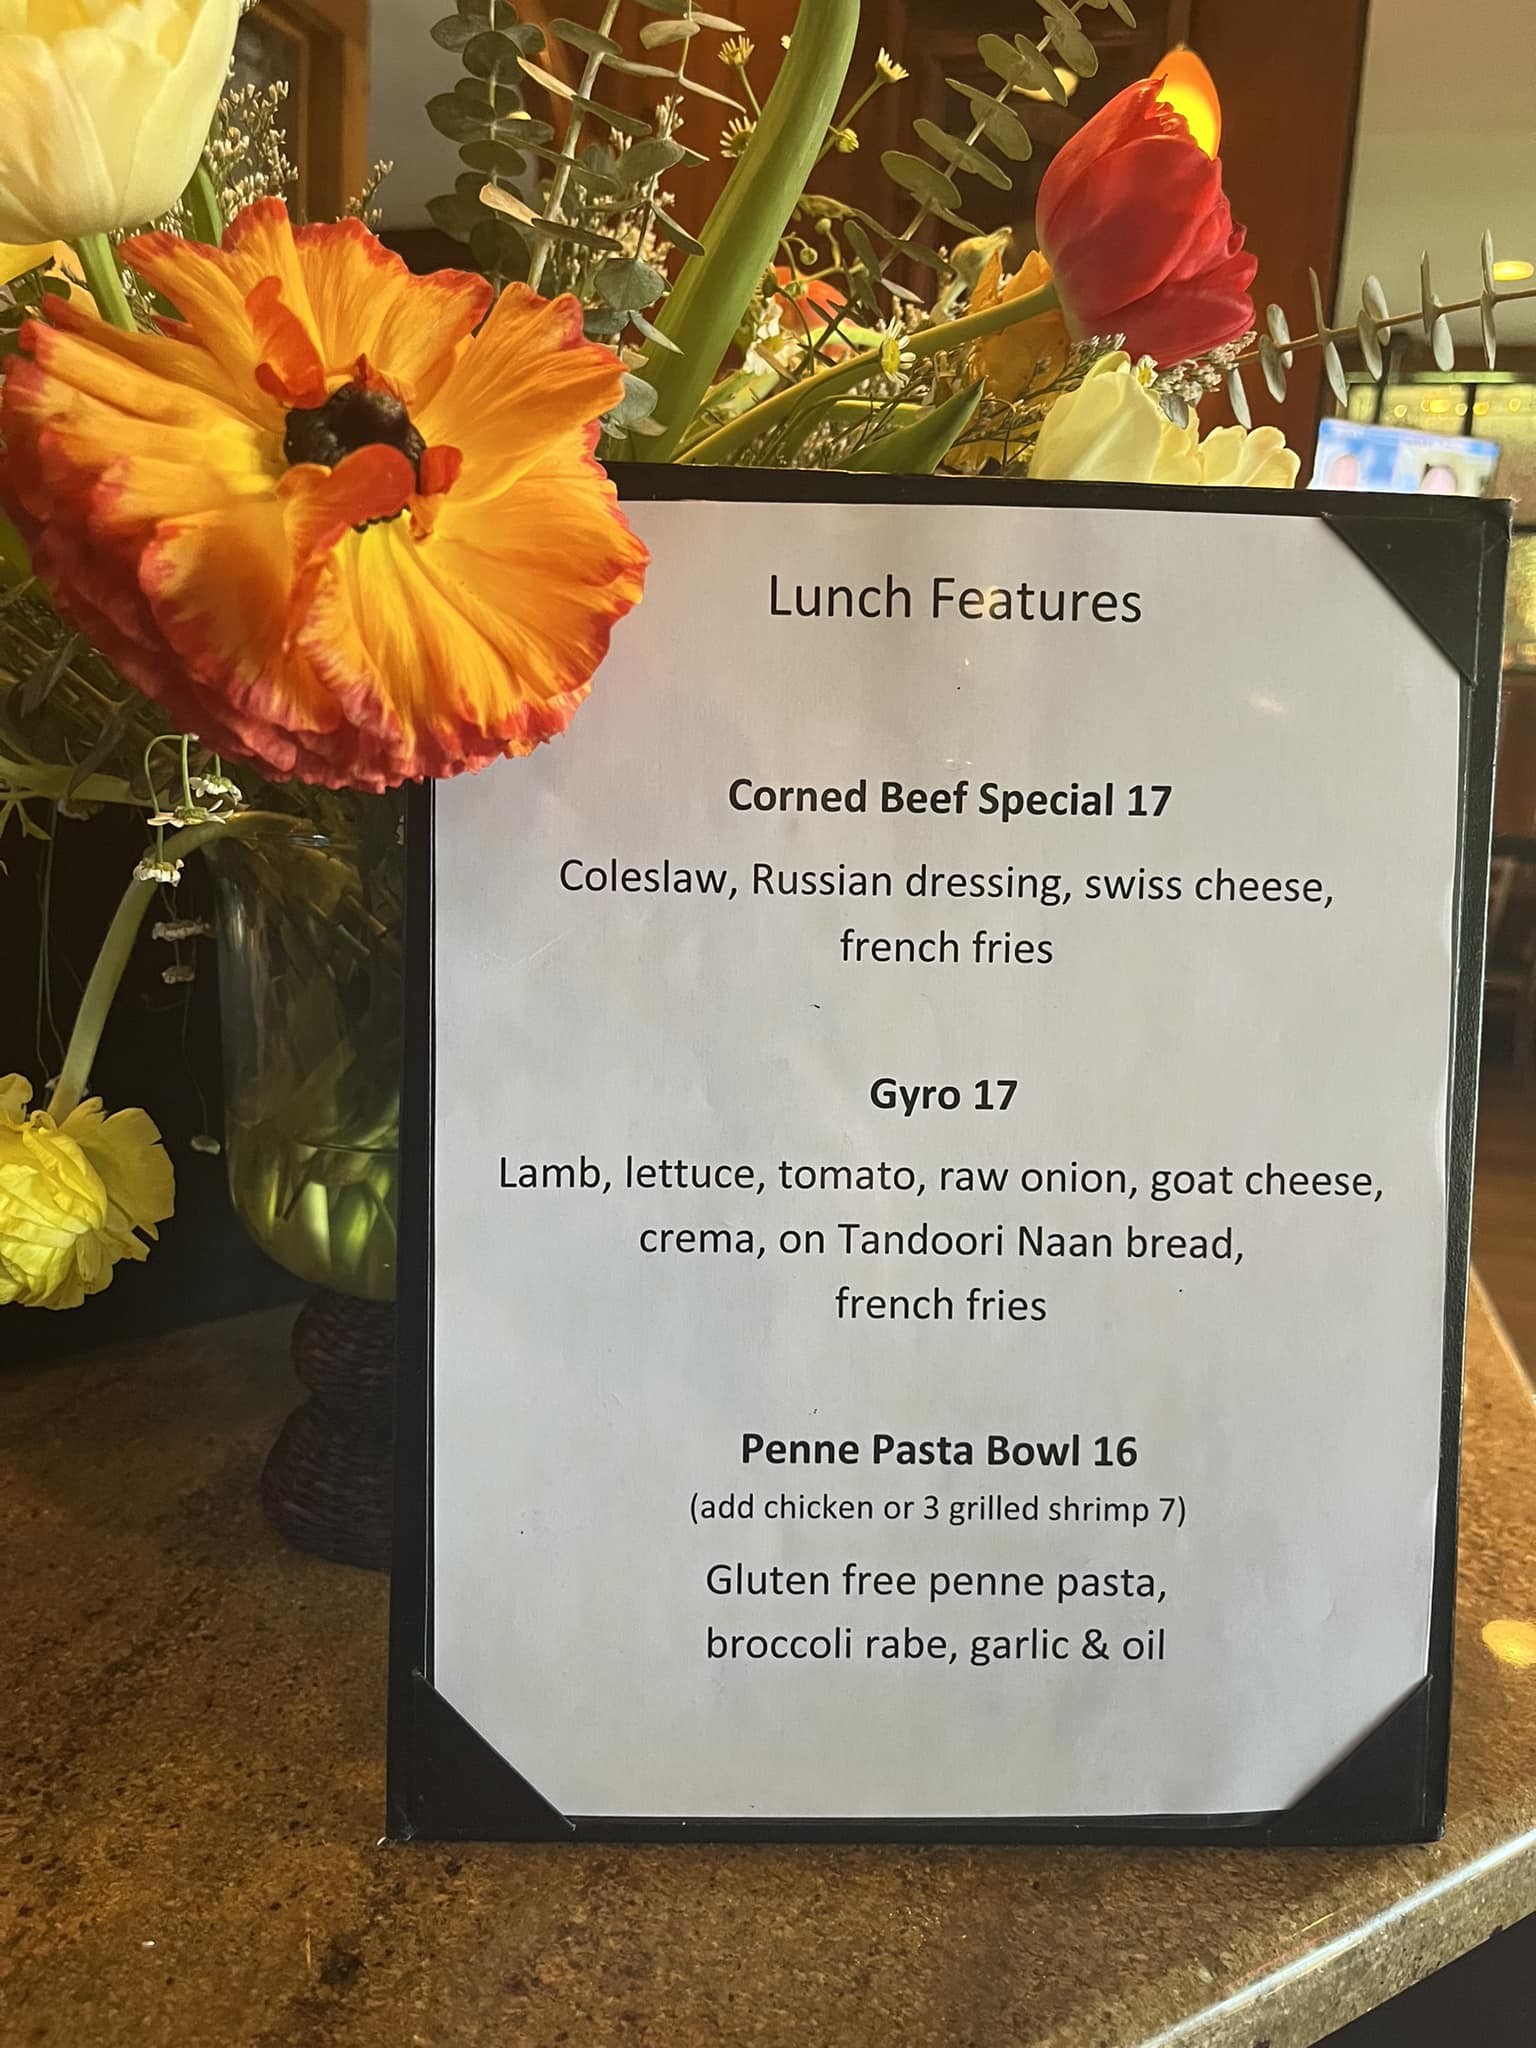 Lunch Features
Corned Beef Special 17
Coleslaw, Russian dressing, swiss cheese,
french fries
Gyro 17
Lamb, lettuce, tomato, raw onion, goat cheese,
crema, on Tandoori Naan bread,
french fries
Penne Pasta Bowl 16
(add chicken or 3 grilled shrimp 7)
Gluten free penne pasta,
broccoli rabe, garlic & oil